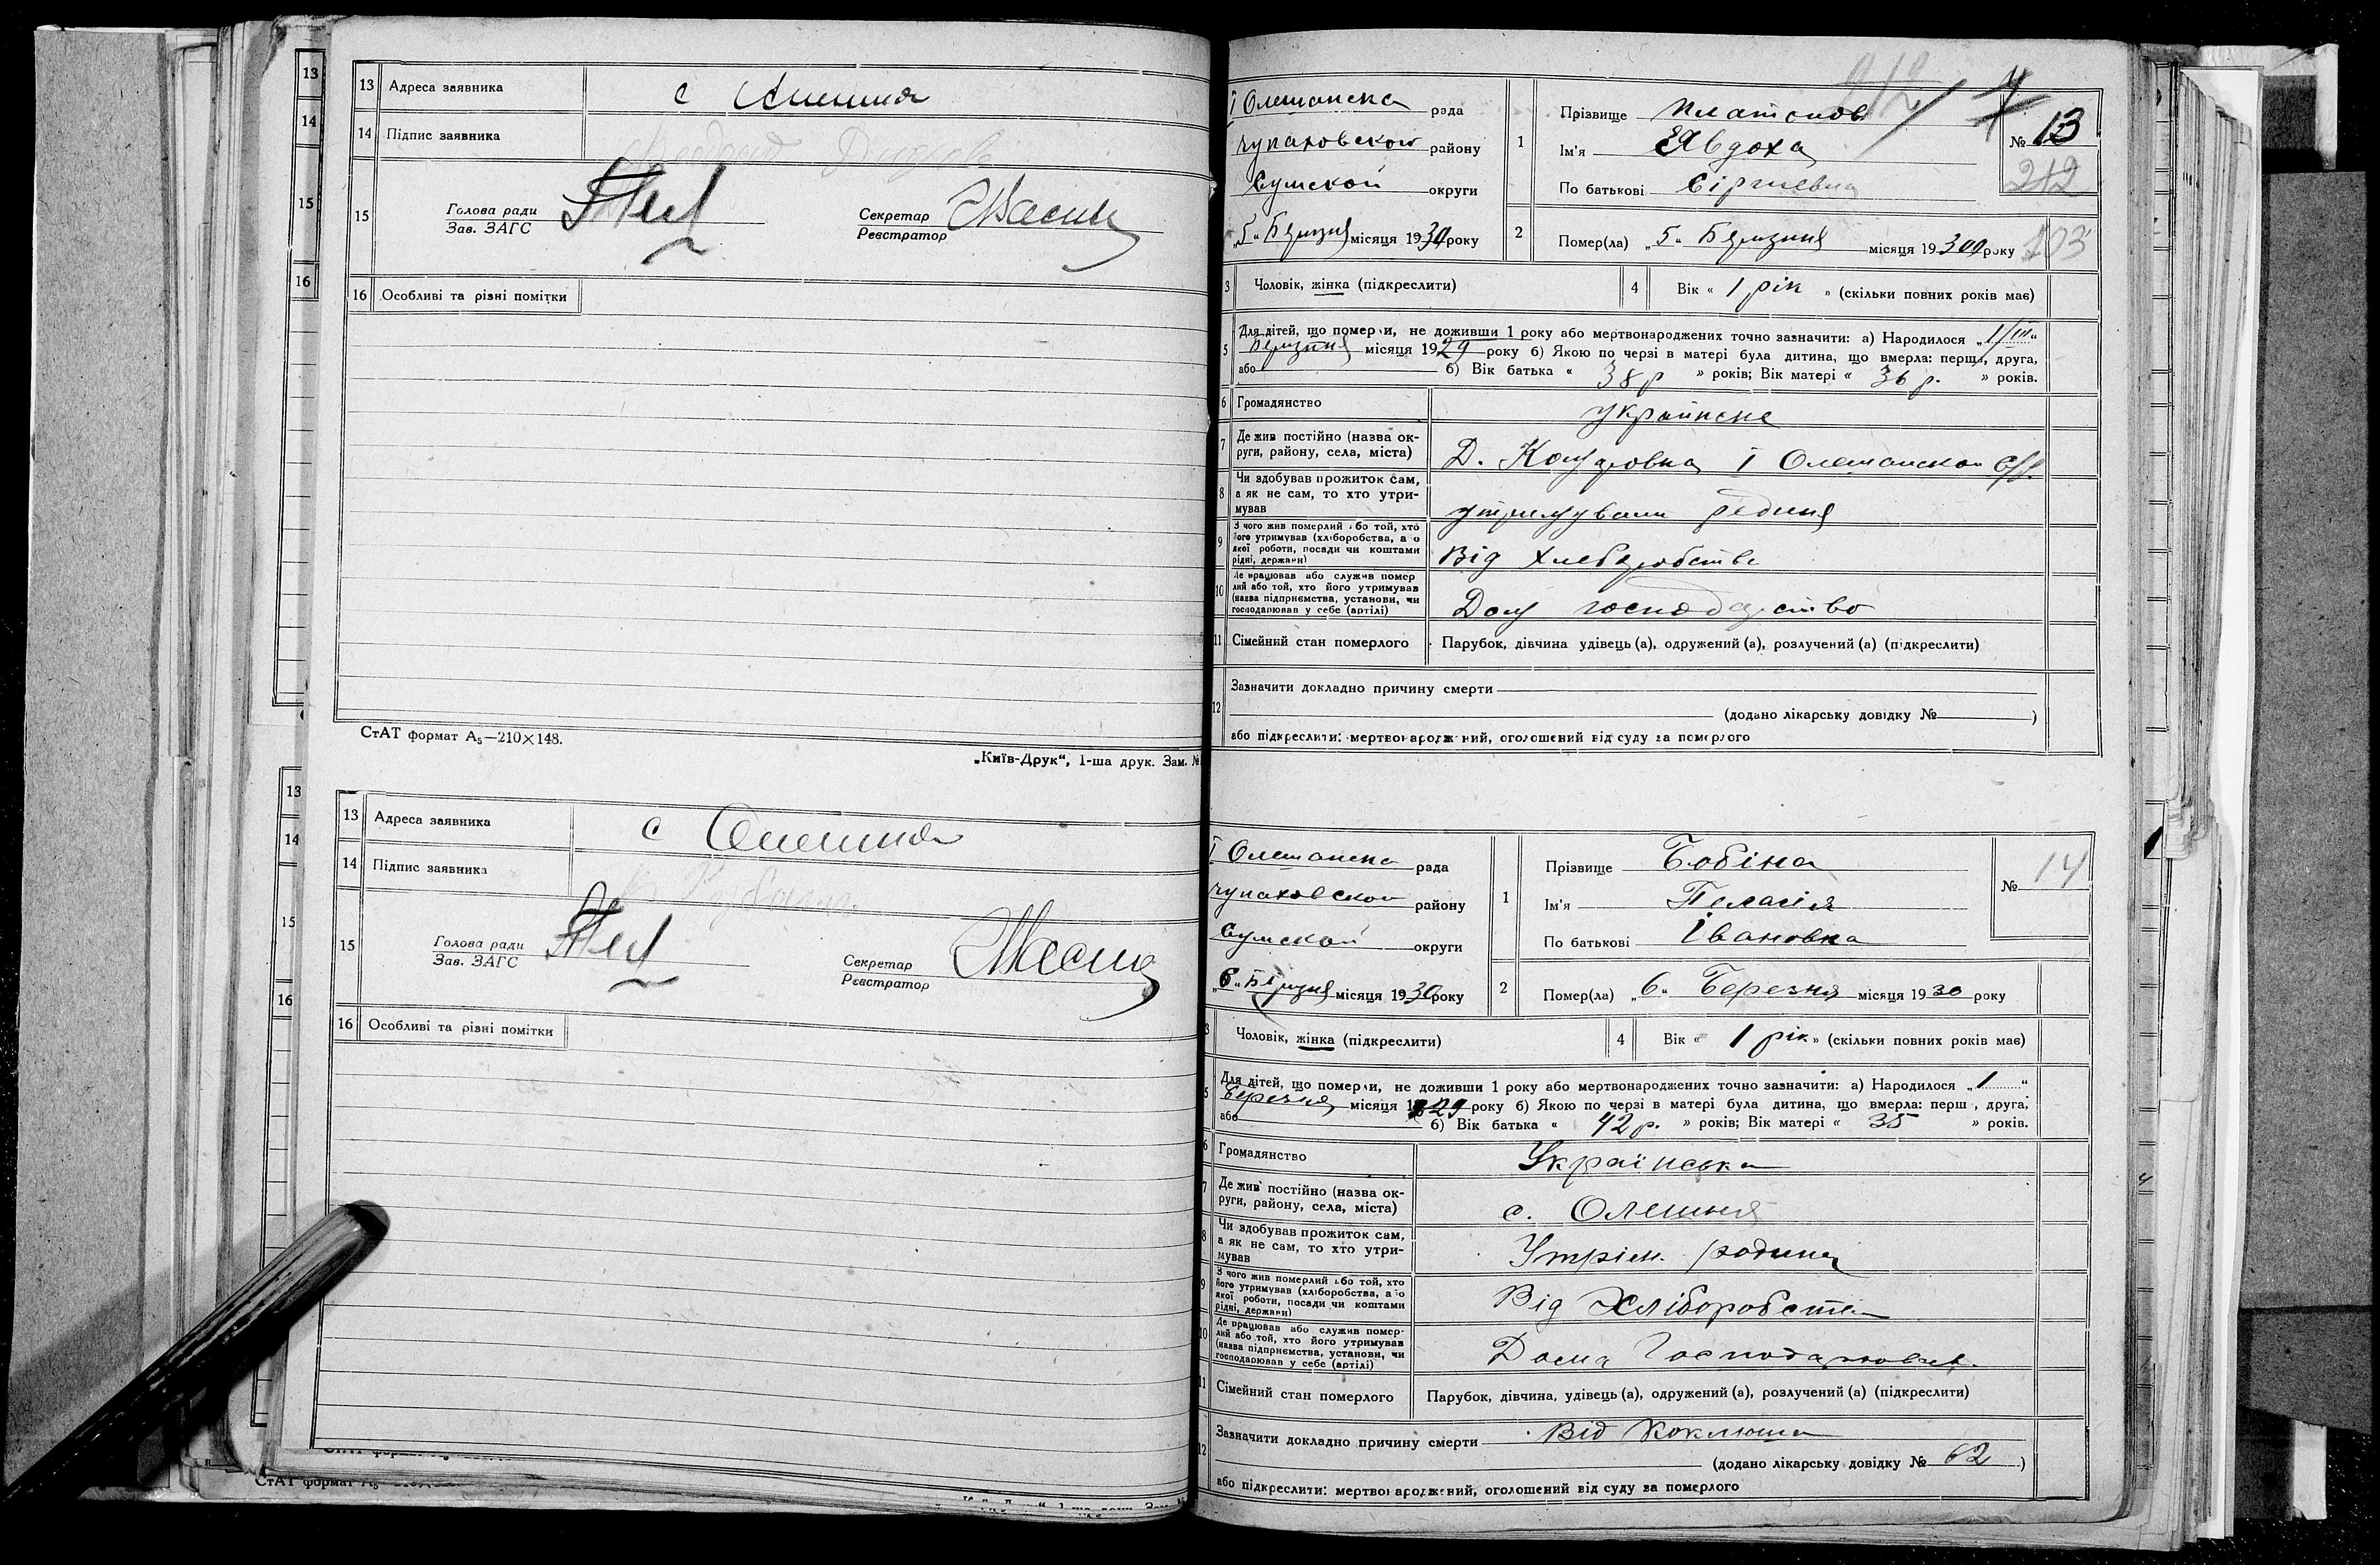 13 Адреса заявника с Олешня
14 Підпис заявника
15 Голова ради
Зав. ЗАГС
Секретар
Реєстратор
16 Особливі та різні помітки
СтАТ формат А₅—210×148.
„Київ-Друк“, 1-ша друк. Зам. №
13 Адреса заявника с Олешня
14 Підпис заявника
15 Голова ради
Зав. ЗАГС
Секретар
Реєстратор
16 Особливі та різні помітки
СтАТ формат А₅
І Олешанска рада
Чупаховской району
Сумской округи
„5“ Березня місяця 1930 року
1 Прізвище
Ім'я Явдоха
По батькові Сіргиевна
№ 13
212
103
2 Помер(ла) „5“ Березня місяця 1930 року
3 Чоловік, жінка (підкреслити)
4 Вік « 1 рік » (скільки повних років має)
5 Для дітей, що померли, не доживши 1 року або мертвонароджених точно зазначити: а) Народилося „1/III“
березня місяця 1929 року б) Якою по черзі в матері була дитина, що вмерла: перша, друга,
або б) Вік батька « 38 р » років; Вік матері « 36 р. » років.
6 Громадянство українске
7 Де жив постійно (назва округи, району, села, міста) І Олешанской с/р.
8 Чи здобував прожиток сам, а як не сам, то хто утримував утримували родина
9 З чого жив померлий або той, хто його утримував (хліборобства, а о якої роботи, посади чи коштами рідні, держави) Від хлеборобства
10 Де працював або служив помер лий або той, хто його утримував (назва підприємства, установи, чи господарював у себе (артілі) Дом господарство
11 Сімейний стан померлого Парубок, дівчина удівець (а), одружений (а), розлучений (а) (підкреслити)
12 Зазначити докладно причину смерти
(додано лікарську довідку № )
або підкреслити: мертвонароджений, оголошений від суду за померлого
І Олешанска рада
Чупаховской району
Сумской округи
„6“ Березня місяця 1930 року
1 Прізвище Бобіна
Ім'я Пелагія
По батькові Івановна
№ 14
2 Помер(ла) „6“ Березня місяця 1930 року
3 Чоловік, жінка (підкреслити)
4 Вік « 1 рік » (скільки повних років має)
5 Для дітей, що померли, не доживши 1 року або мертвонароджених точно зазначити: а) Народилося „1“
березня місяця 1929 року б) Якою по черзі в матері була дитина, що вмерла: перш , друга,
або б) Вік батька « 42 р. » років; Вік матері « 35 » років.
6 Громадянство Українська
7 Де жив постійно (назва округи, району, села, міста) с. Олешня
8 Чи здобував прожиток сам, а як не сам, то хто утримував Утрім. родина
9 З чого жив померлий або той, хто його утримував (хліборобства, а о якої роботи, посади чи коштами рідні, держави) Від Хліборобства
10 Де працював або служив померлий або той, хто його утримував (назва підприємства, установи, чи господарював у себе (артілі) Дома Господарював.
11 Сімейний стан померлого Парубок, дівчина, удівець (а), одружений (а), розлучений (а) (підкреслити)
12 Зазначити докладно причину смерти Від Коклюша
(додано лікарську довідку № 62 )
або підкреслити: мертвонароджений, оголошений від суду за померлого